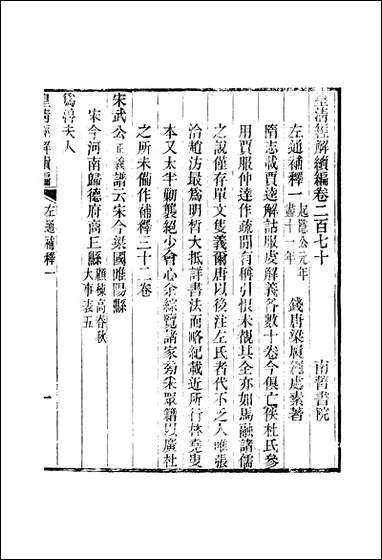 皇清經解續編卷二百七十　南菁書院
左通補釋一 起隱公元年盡十一年　錢唐梁履繩處素著
隋志載賈逵解詁服虔解義各數十卷今俱亡佚杜氏參
用賈服仲達作疏閒有稱引恨未覩其全亦如馬融諸儒
之說僅存單文隻義爾唐以後注左氏者代不乏人唯張
洽趙汸最爲明晳大抵詳書法而略紀載近所行林堯叟
本又太半勦襲絕少會心余綜覽諸家旁采眾籍以廣杜
之所未備作補釋三十二卷
宋武公 正義譜云宋今梁國睢陽縣
宋今河南歸德府商丘縣 顧棟高春秋大事表五
爲魯夫人
皇清經解續編　左通補釋一　一